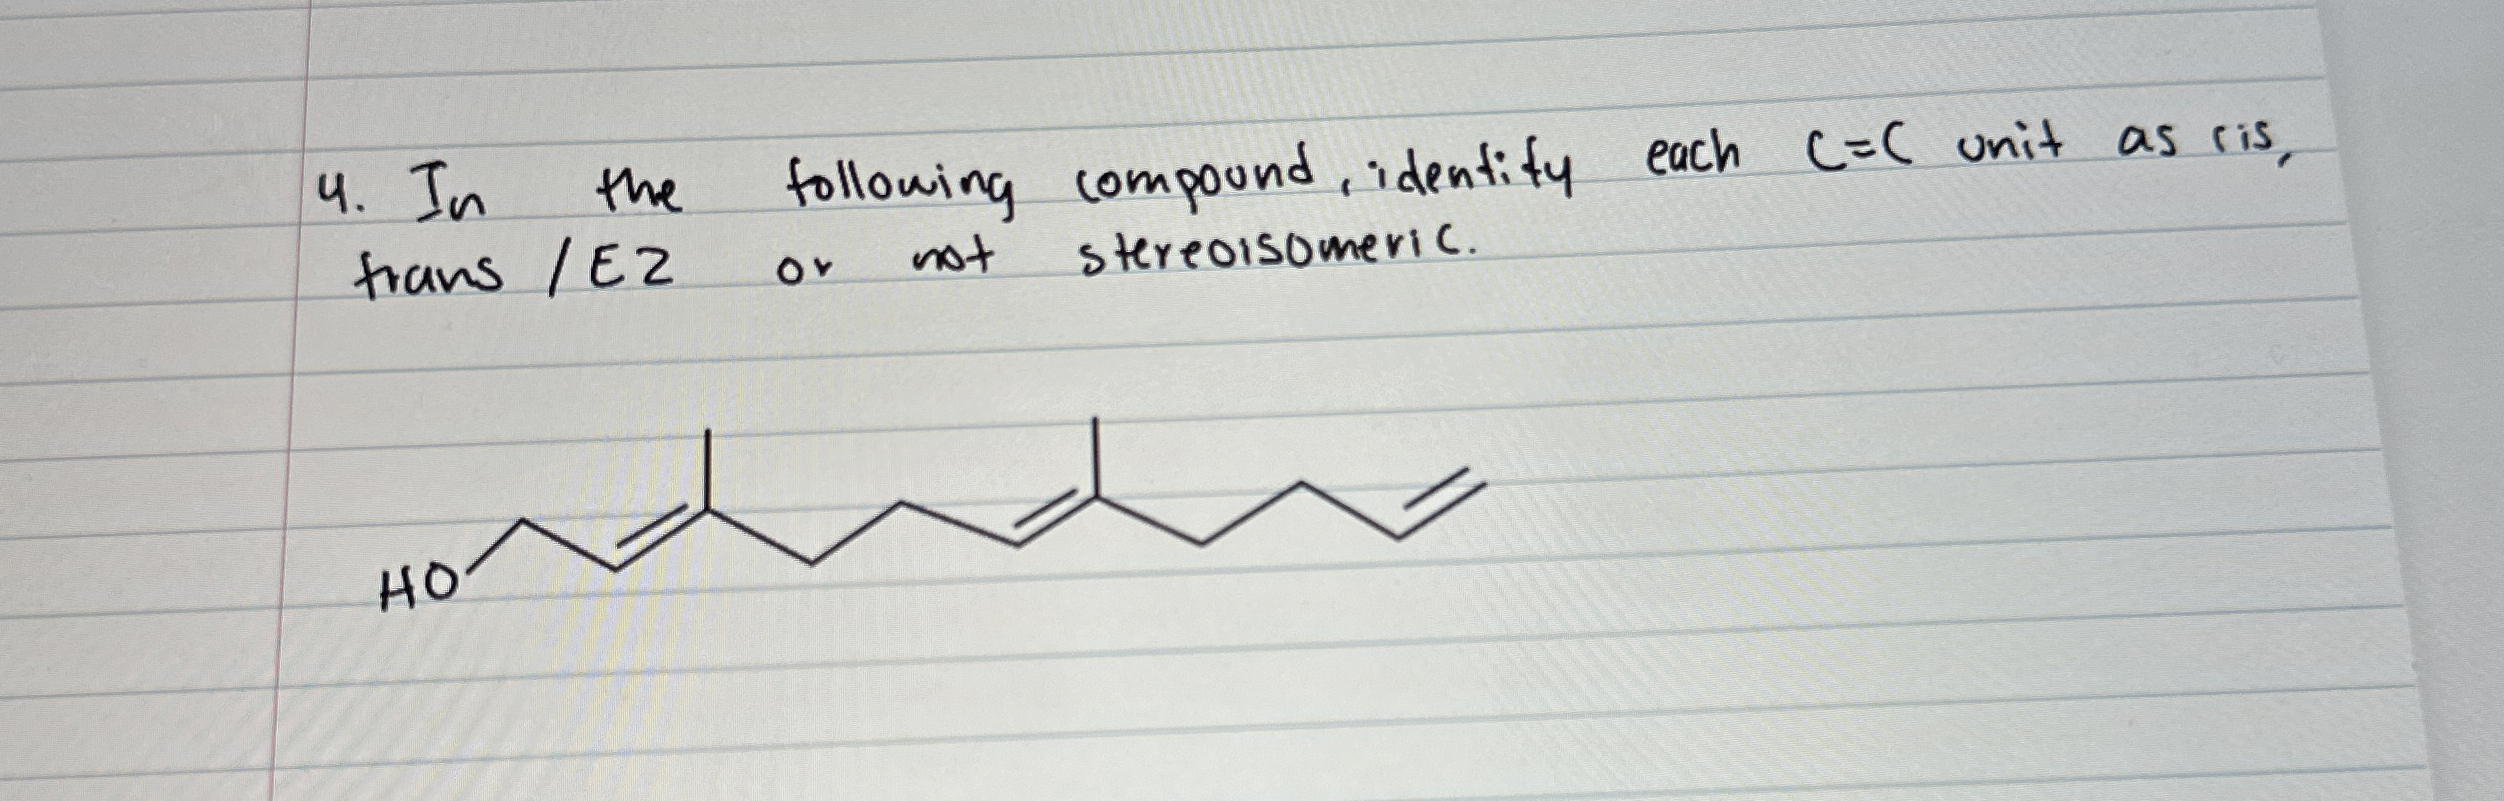 4. In the following compound, identify each C=C unit as cis,
trans / EZ or not stereoisomeric.
HO